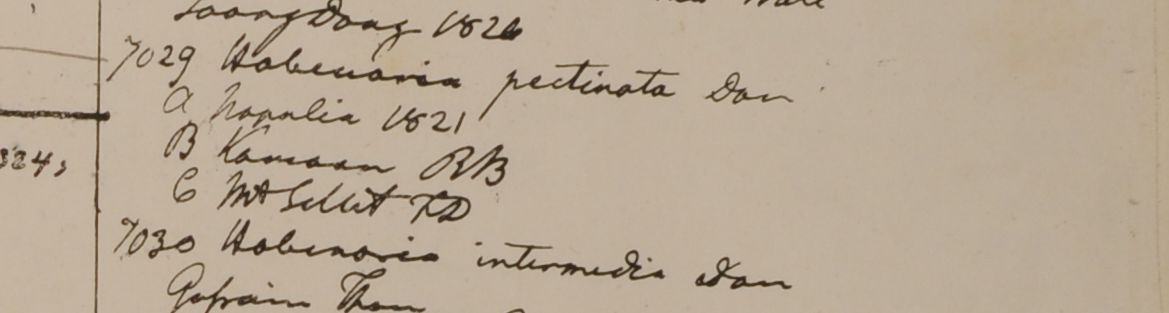 Toong Dong 1826
7029 Habenaria pectinata Don
A Napalia 1821
B Kamaon RB
C Mt Sillet FD
7030 Habenaria intermedia Don
Gosain Than